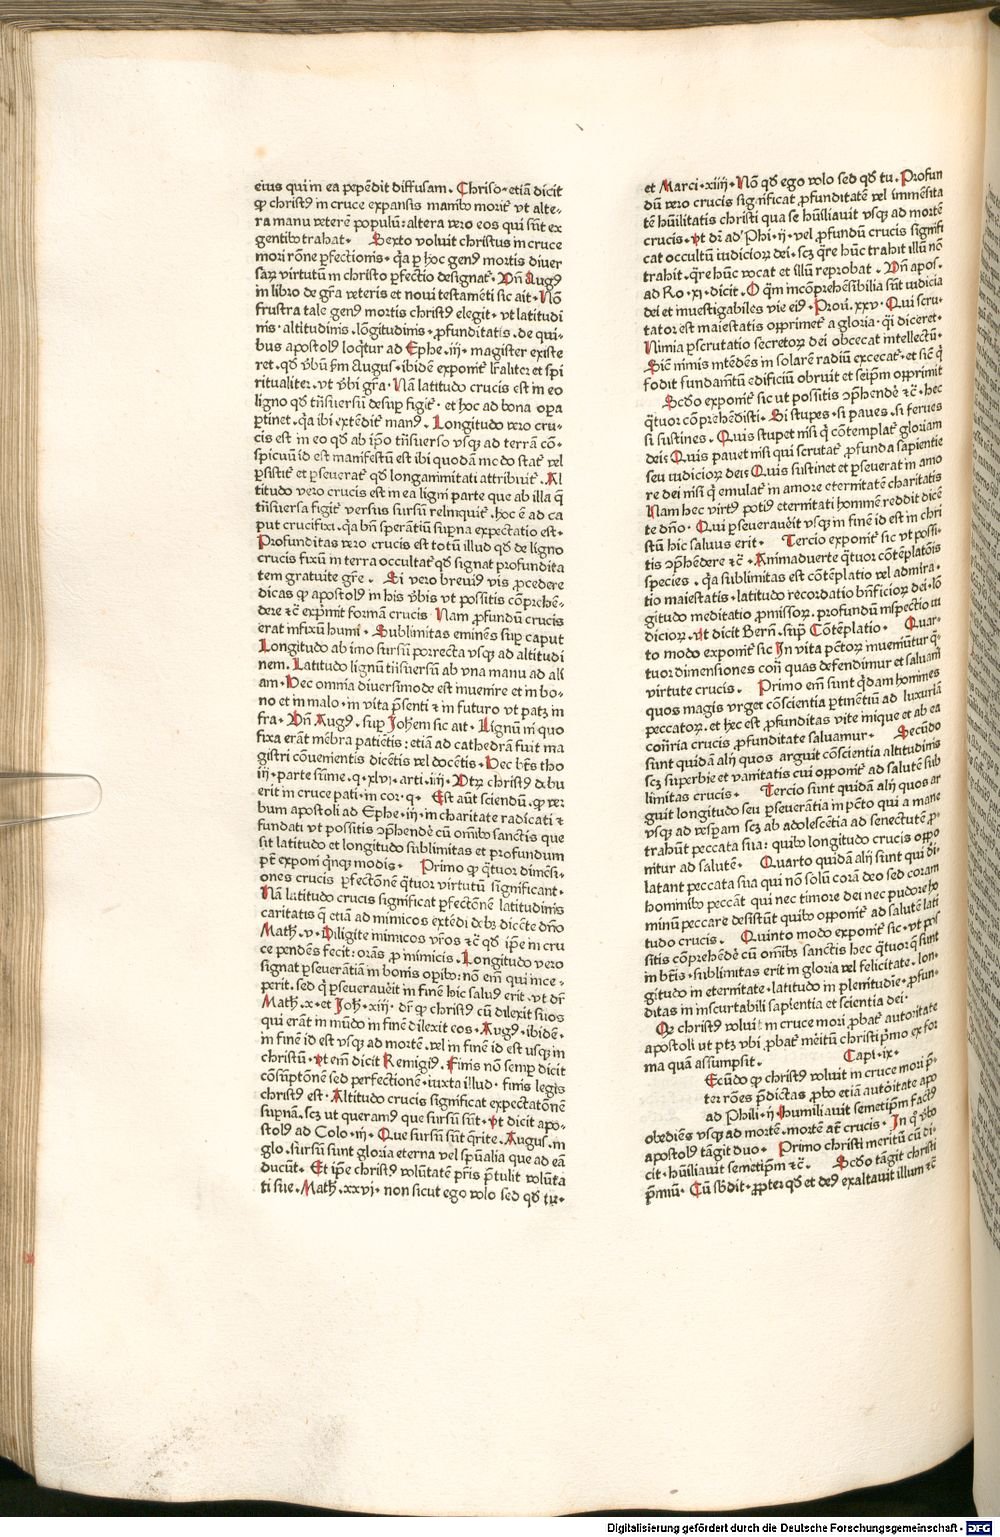 eius qui in ea pepēdit diffusam. Chriso. etiā dicit
ꝙ christꝰ in cruce expansis manibꝰ morit᷑ vt alte-
ra manu veterē populū: altera vero eos qui sūt ex
gentibꝰ trahat. Sexto voluit christus in cruce
mori rōne ꝑfectionis. q̄a ꝑ hoc genꝰ mortis diuer
saꝝ virtutū in christo ꝑfectio designat᷑. Vn̄ Augꝰ
in libro de gr̄a veteris et noui testamēti sic ait. Nō
frustra tale genꝰ mortis christꝰ elegit. vt latitudi
nis. altitudinis. lōgitudinis. ꝓfunditatis. de qui-
bus apostolꝰ loq̄tur ad Ephe. iij. magister existe
ret. qđ vbū ꝓm Augus. ibidē exponit᷑ lr̄alit᷑ et spi
ritualiter. vt vbi gr̄a. Nā latitudo crucis est in eo
ligno qđ trāsuersū desuꝑ figit᷑. et hoc ad bona oꝑa
ꝑtinet. q̄a ibi extēdit᷑ manꝰ. Longitudo vero cru-
cis est in eo qđ ab ip̄o trāsuerso vsqꝫ ad terrā cō-
spicuū id est manifestū est ibi quodā modo stat᷑ vel
ꝑsistit᷑ et ꝑseuerat᷑ qđ longanimitati attribuit᷑. Al
titudo vero crucis est in ea ligni parte que ab illa q̄
trāsuersa figit᷑ versus sursū relinquit᷑. hoc ē ad ca
put crucifixi. q̄a bn̄ sperātiū suꝑna expectatio est.
Profunditas vero crucis est totū illud qđ de ligno
crucis fixū in terra occultat᷑ qđ signat profundita
tem gratuite gr̄e. Si vero breuiꝰ vis ꝓcedere
dicas ꝙ apostolꝰ in his vbis vt possitis cōprehē-
dere ⁊c̄ exprimit formā crucis Nam ꝓfundū crucis
erat infixū humi. Sublimitas eminēs suꝑ caput
Longitudo ab imo sursū porrecta vsqꝫ ad altitudi
nem. Latitudo lignū trāsuersū ab vna manu ad ali
am. Hec omnia diuersimode est inuenire et in bo-
no et in malo. in vita p̄senti ⁊ in futuro vt patꝫ in
fra. Vn̄ Augꝰ. suꝑ Joh̄em sic ait. Lignū in quo
fixa erāt mēbra patiētis: etiā ad cathedrā fuit ma
gistri cōuenientis dicētis vel docētis. Hec bt̄s tho
iij. parte sūme. q. xlvi. arti. iiij. Vtꝝ christꝰ debu
erit in cruce pati. in cor. q. Est aūt sciendū. ꝙ ver
bum apostoli ad Ephe. iij. in charitate radicati ⁊
fundati vt possitis ↄp̄hendē cū om̄ibꝰ sanctis que
sit latitudo et longitudo sublimitas et profundum
pt̄ exponi q̄nqꝫ modis. Primo ꝙ q̄tuor dimēsi-
ones crucis ꝑfectōnē q̄tuor virtutū significant.
Nā latitudo crucis significat ꝑfectōnē latitudinis
caritatis q̄ etiā ad inimicos extēdi debꝫ dicēte dn̄o
Math. v. Diligite inimicos vr̄os ⁊c̄ qđ ip̄e in cru
ce pendēs fecit: orās ꝓ inimicis. Longitudo vero
signat ꝑseuerātiā in bonis oꝑibꝰ: nō em̄ qui ince-
perit. sed q̄ ꝑseuerauēit in finē hic saluꝰ erit. vt dr̄
Math. x. et Joh. xiij. dr̄ ꝙ christꝰ cū dilexit suos
qui erāt in mūdo in finē dilexit eos. Augꝰ. ibidē.
in finē id est vsqꝫ ad mortē. vel in finē id est vsqꝫ in
christū. vt em̄ dicit Remigiꝰ. Finis nō semꝑ dicit
cōsūptōnē sed perfectionē. iuxta illud. finis legis
christꝰ est. Altitudo crucis significat expectatōnē
supnā. scꝫ ut queramꝰ que sursū sūt. vt dicit apo-
stolꝰ ad Colo. iij. Que sursū sūt q̄rite. Augus. in
glo. sursū sunt gloria eterna vel spūalia que ad eā
ducūt. Et ip̄e christꝰ volūtatē pr̄is p̄tulit volūta
ti sue. Math. xxvi. non sicut ego volo sed qđ tu.
et Marci. xiiij. Nō qđ ego volo sed qđ tu. Profun
dū vero crucis significat ꝓfunditatē vel immēsita
tē hūilitatis christi qua se hūiliauit vsqꝫ ad mortē
crucis. vt dr̄ ad Phi. ij. vel ꝓfundū crucis signifi
cat occultū iudicioꝝ dei. scꝫ q̄re hūc trahit illū nō
trahit. q̄re hūc vocat et illū reprobat. Vn̄ apos.
ad Ro. xi. dicit. O q̄m incōprehēsibilia sūt iudicia
dei et inuestigabiles vie eiꝰ. Proū. xxv. Qui scru-
tator est maiestatis opprimet᷑ a gloria. q̄i diceret.
Nimia ꝑscrutatio secretoꝝ dei obcecat intellectū.
Sic̄ nimis intēdēs in solarē radiū excecat᷑. et sic̄ q̄
fodit fundamtū edificiū obruit et seipm̄ opprimit
Scdo exponit᷑ sic ut possitis ↄp̄hendē ⁊c̄. hec
q̄tuor cōprehēdisti. Si stupes. si paues. si ferues
si sustines. Quis stupet nisi q̄ cōtemplat᷑ gloriam
dei: Quis pauet nisi qui scrutat᷑ ꝓfunda sapientie
seu iudicioꝝ dei: Quis sustinet et ꝑseuerat in amo
re dei nisi q̄ emulat᷑ in amore eternitatē charitatis
Nam hec virtꝰ potiꝰ eternitati hominē reddit dicē
te dn̄o. Qui ꝑseuerauēit vsqꝫ in finē id est in chri
stū hic saluus erit. Tercio exponit᷑ sic vt possi-
tis ↄp̄hēdere ⁊c̄. Animaduerte q̄tuor cōtēplatōis
species. q̄a sublimitas est cōtēplatio vel admira-
tio maiestatis. latitudo recordatio bn̄ficioꝝ dei. lō
gitudo meditatio ꝓmissoꝝ. profundū inspectio iu
dicioꝝ. vt dicit Bern̄. suꝑ Cōtēplatio. Quar-
to modo exponit᷑ sic In vita pc̄toꝝ inueniūtur q̄-
tuor dimensiones con̄ quas defendimur et saluam̄
virtute crucis. Primo em̄ sunt q̄dam homines
quos magis vrget cōscientia ꝑtinētiū ad luxuriā
peccatoꝝ. et hec est ꝓfunditas vite inique et ab ea
con̄ria crucis ꝓfunditate saluamur. Secūdo
sunt quidā alij quos arguit cōscientia altitudinis
scꝫ suꝑbie et vanitatis cui opponit᷑ ad salutē sub
limitas crucis. Tercio sunt quidā alij quos ar
guit longitudo seu ꝑseuerātia in pc̄to qui a mane
vsqꝫ ad vesꝑam scꝫ ab adolescētia ad senectutē ꝓ-
trahūt peccata sua: quibꝰ longitudo crucis oppo
nitur ad salutē. Quarto quidā alij sunt qui di-
latant peccata sua qui nō solū corā deo sed coram
hominibꝰ peccāt qui nec timore dei nec pudore ho
minū peccare desistūt quibꝰ opponit᷑ ad salutē lati
tudo crucis. Quinto modo exponit᷑ sic. vt pos
sitis cōprehēdē cū om̄ibꝫ sanctis hec q̄tuor q̄ sunt
in bt̄is. sublimitas erit in gloria vel felicitate. lon-
gitudo in eternitate. latitudo in plenitudīe. ꝓfun-
ditas in inscrutabili sapientia et scientia dei.
Qꝫ christꝰ voluit in cruce mori ꝓbat᷑ autoritate
apostoli ut ptꝫ vbi ꝓbat᷑ mēitū christi p̄mo ex for
ma quā assumpsit. Capi. ix.
Ecūdo ꝙ christꝰ voluit in cruce mori p̄-
ter rōes p̄dictas ꝓbo etiā autōitate apo
ad Phili. ij. Humiliauit semetip̄m factꝰ
obediēs vsqꝫ ad mortē. mortē at̄ crucis. In q̄ vbo
apostolꝰ tāgit duo. Primo christi meritū cū di-
cit. hūiliauit semetip̄m ⁊c̄. Scdo tāgit christi
p̄miū. Cū sb̄dit. ꝓpter qđ et deꝰ exaltauit illum ⁊c̄
Digitalisierung gefördert durch die Deutsche Forschungsgemeinschaft - DFG